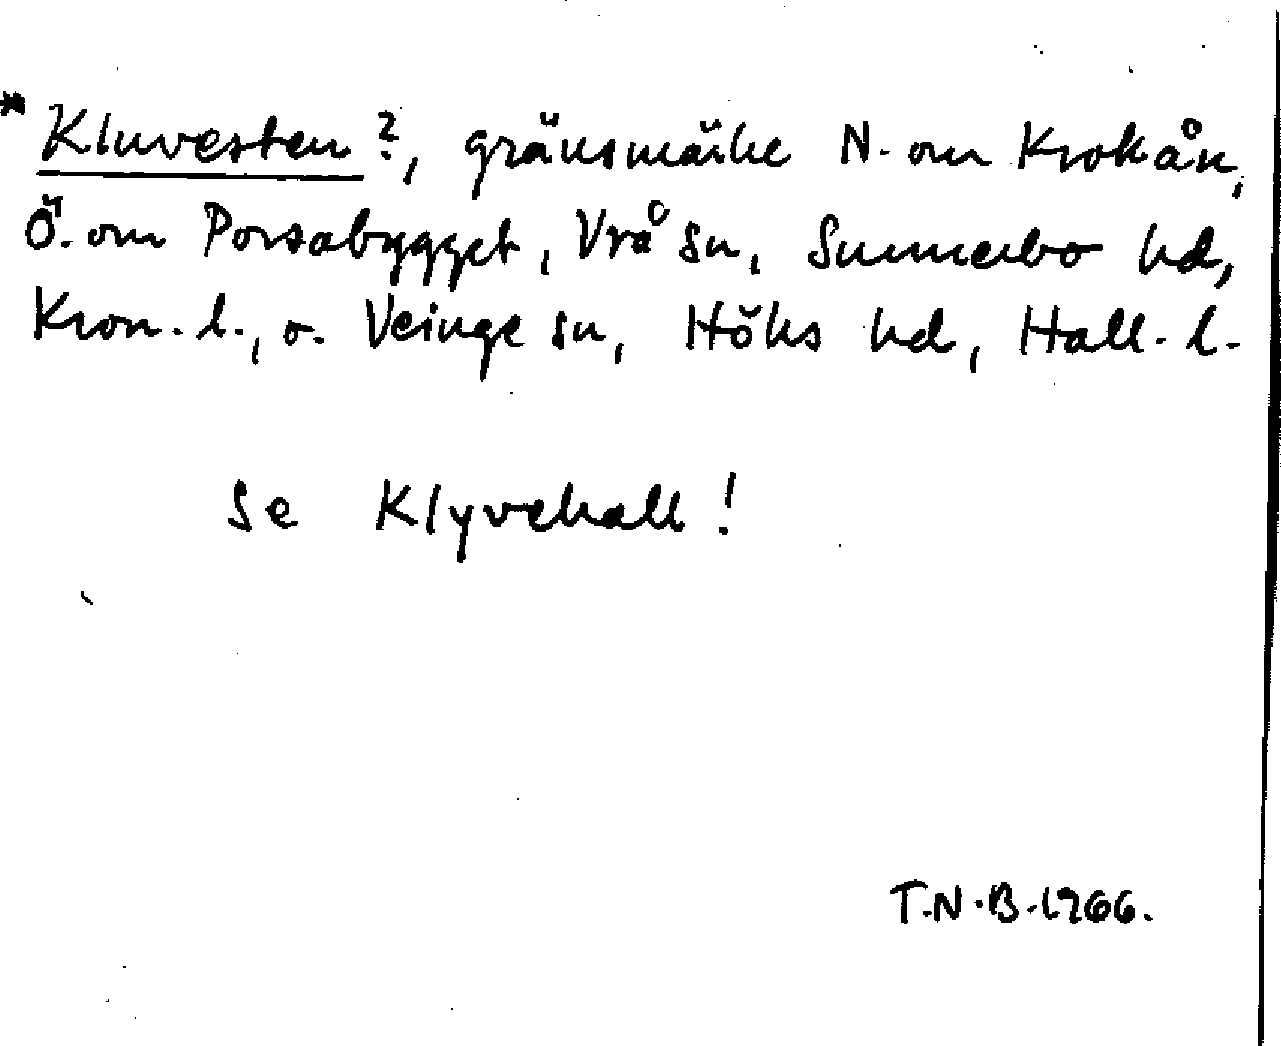 * Kluvesten?, gränsmärke N. om Krokån,
Ö. om Porsabygget, Vrå sn, Sunnerbo hd,
Kron. l., o. Veinge sn, Höks hd, Hall. l.
Se Klyvehall!
T.N.B. 1966.